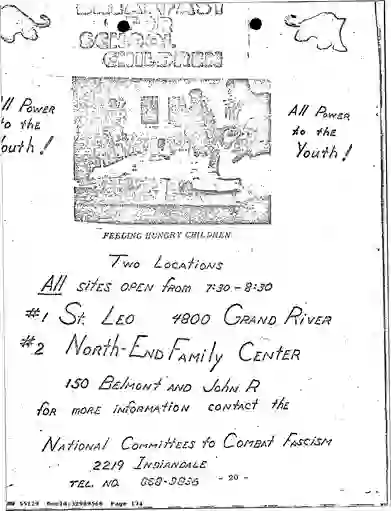 BREAKFAST
FOR
SCHOOL
CHILDREN
All Power
to the
Youth!
All Power
to the
Youth!
FEEDING HUNGRY CHILDREN
Two Locations
All sites open from 7:30-8:30
#1 St. Leo 4800 Grand River
#2 North-End Family Center
150 Belmont and John R
for more information contact the
National Committees to Combat Fascism
2219 Indiandale
TEL. NO. 868-9836
- 20 -
NW 55129 DocId:32989568 Page 134